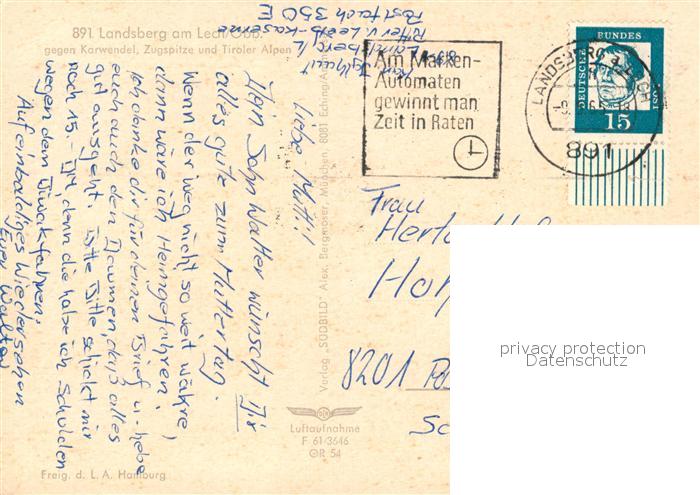 891 Landsberg am Lech/Obb.
gegen Karwendel, Zugspitze und Tiroler Alpen
Postfach 350 E
Ritter v. Leeb-Kaserne
Landsberg/L
Liebe Mutti!
Dein Sohn Walter wünscht Dir
alles gute zum Muttertag.
Wenn der Weg nicht so weit währe,
dann wäre ich Heimgefahren!
Ich danke dir für deinen Brief u. hebe
euch auch den Daumen, daß alles
gut ausgeht. Bitte Bitte schickt mir
noch 15. DM, denn die habe ich Schulden
wegen dem Biwakfahren.
Auf ein baldiges Wiedersehen
Euer Walter
Verlag "SÜDBILD" Alex. Bergmoser, München, 8081 Eching/Ammersee
Am Marken-
Automaten
gewinnt man
Zeit in Raten
LANDSBERG a. LECH
891
DEUTSCHE
BUNDES
POST
15
Frau
8201
Luftaufnahme
F 61/3646
GR 54
Freig. d. L. A. Hamburg
privacy protection
Datenschutz